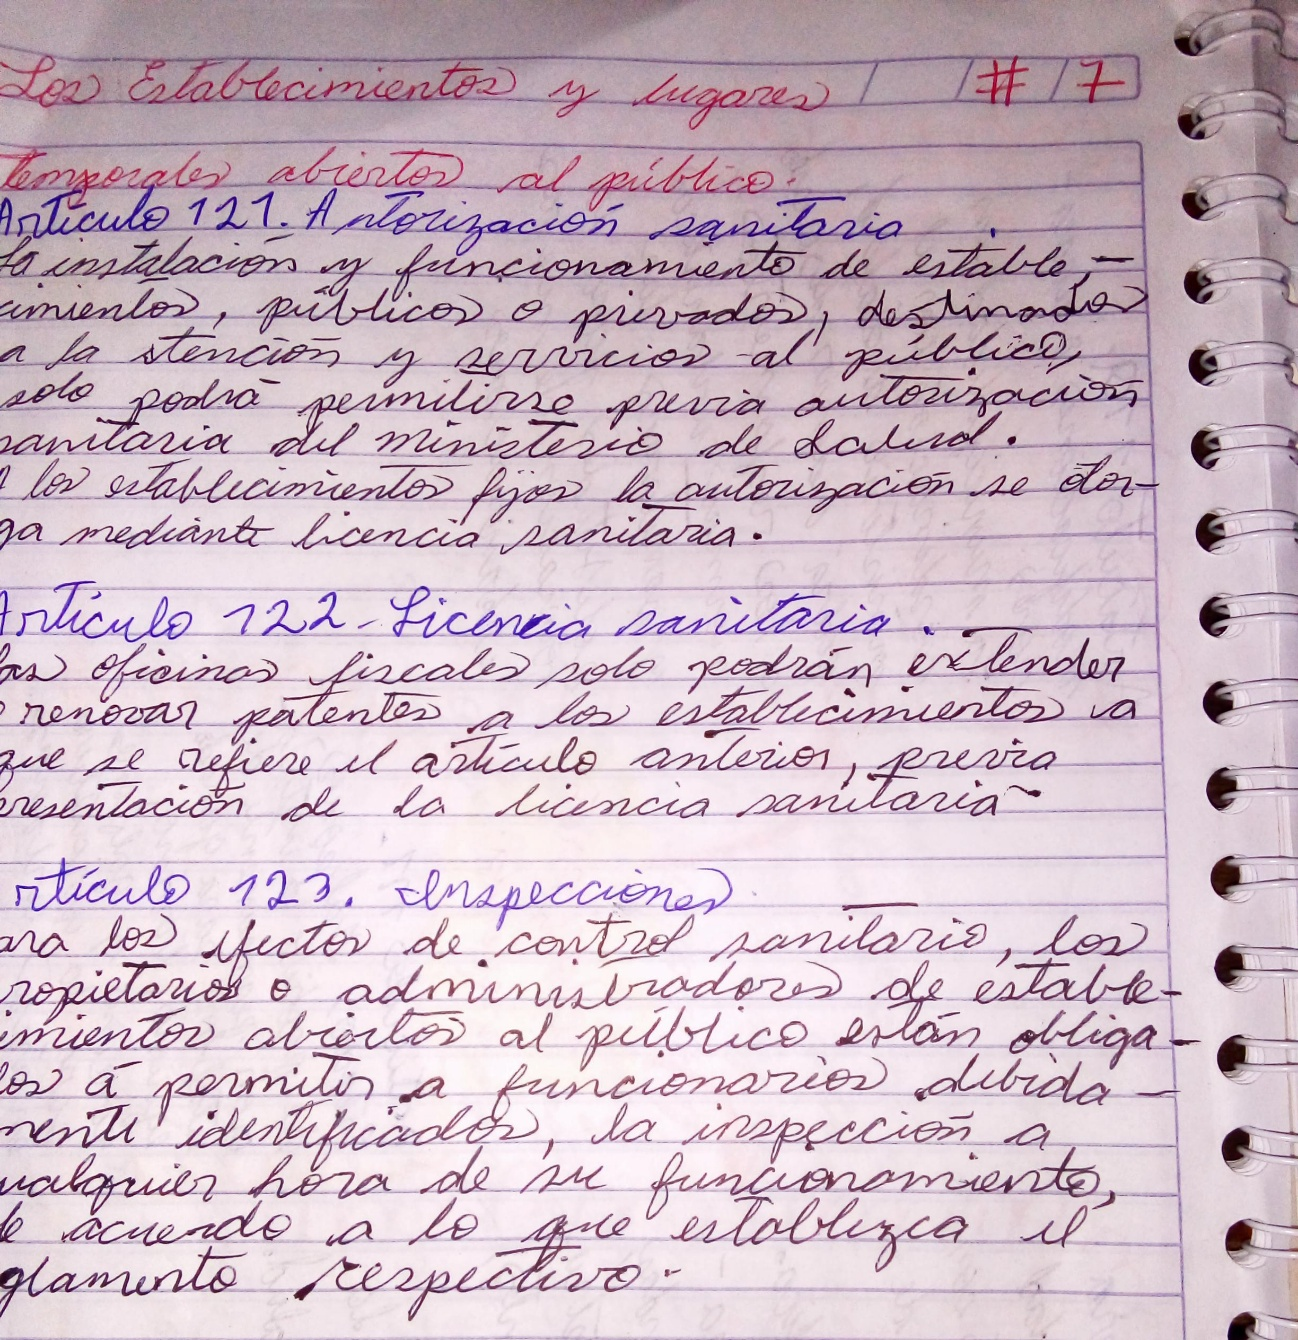 Los Establecimientos y lugares # 7
temporales abiertos al público.
Artículo 121. Autorización sanitaria.
La instalación y funcionamiento de estable-
cimientos, públicos o privados, destinados
a la atención y servicios al público,
solo podrá permitirse previa autorización
sanitaria del ministerio de Salud.
A los establecimientos fijos la autorización se otor-
ga mediante licencia sanitaria.
Artículo 122 - Licencia sanitaria.
las oficinas fiscales solo podrán extender
o renovar patentes a los establecimientos a
que se refiere el artículo anterior, previa
presentación de la licencia sanitaria
rtículo 123. Inspecciones
ara los efectos de control sanitario, los
ropietarios o administradores de estable-
imientos abiertos al público están obliga-
os a permitir a funcionarios debida-
mente identificados, la inspección a
ualquier hora de su funcionamiento,
de acuerdo a lo que establezca el
glamento respectivo.